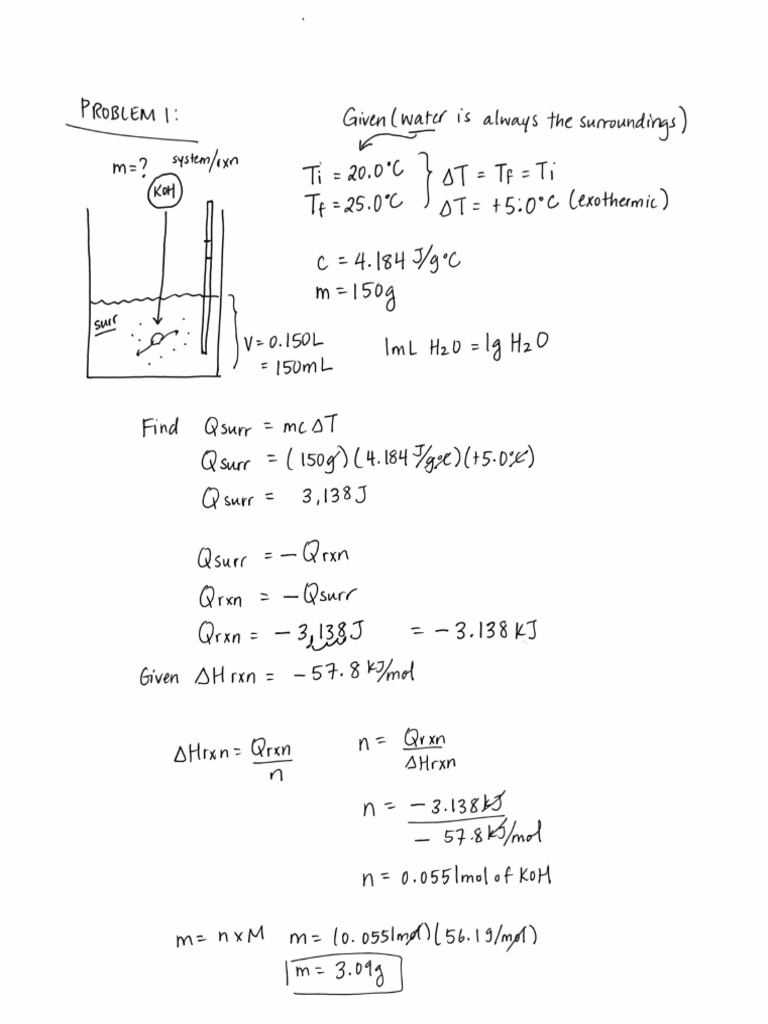 PROBLEM 1:
Given (water is always the surroundings)
m=? system/rxn
KOH
Ti = 20.0°C
Tf = 25.0°C
ΔT = Tf = Ti
ΔT = +5.0°C (exothermic)
c = 4.184 J/g°C
m = 150g
surr
V = 0.150L
= 150mL
1mL H2O = 1g H2O
Find Qsurr = mcΔT
Qsurr = (150g)(4.184 J/g°C)(+5.0°C)
Qsurr = 3,138J
Qsurr = -Qrxn
Qrxn = -Qsurr
Qrxn = -3,138J = -3.138 kJ
Given ΔHrxn = -57.8 kJ/mol
ΔHrxn = Qrxn/n
n = Qrxn/ΔHrxn
n = -3.138kJ/-57.8kJ/mol
n = 0.0551mol of KOH
m = n x M m = (0.0551mol)(56.1g/mol)
m = 3.09g